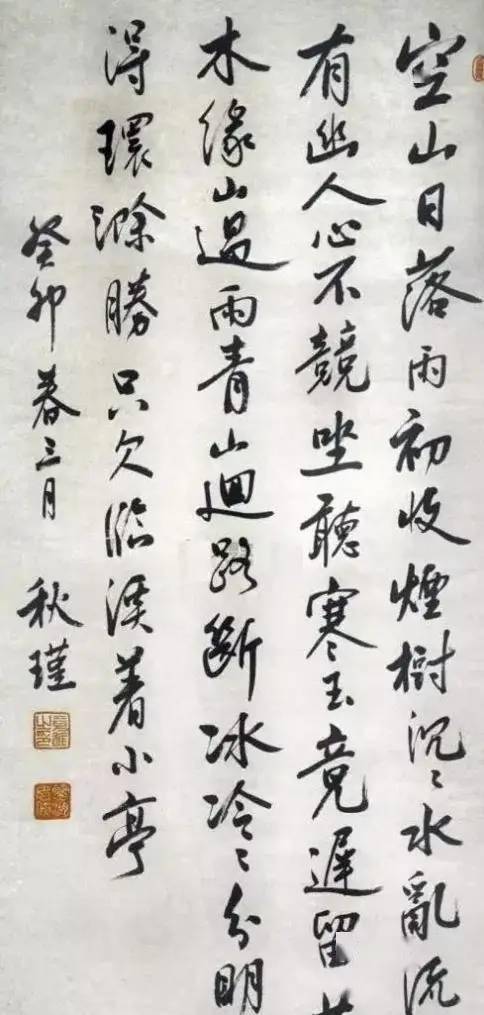 空山日落雨初收煙樹沉〻水亂流
有幽人心不競坐聽寒玉竟遲留
木緣山過雨青山迴路斷冰冷〻分明
得環滁勝只欠臨溪着小亭
癸卯春三月 秋瑾